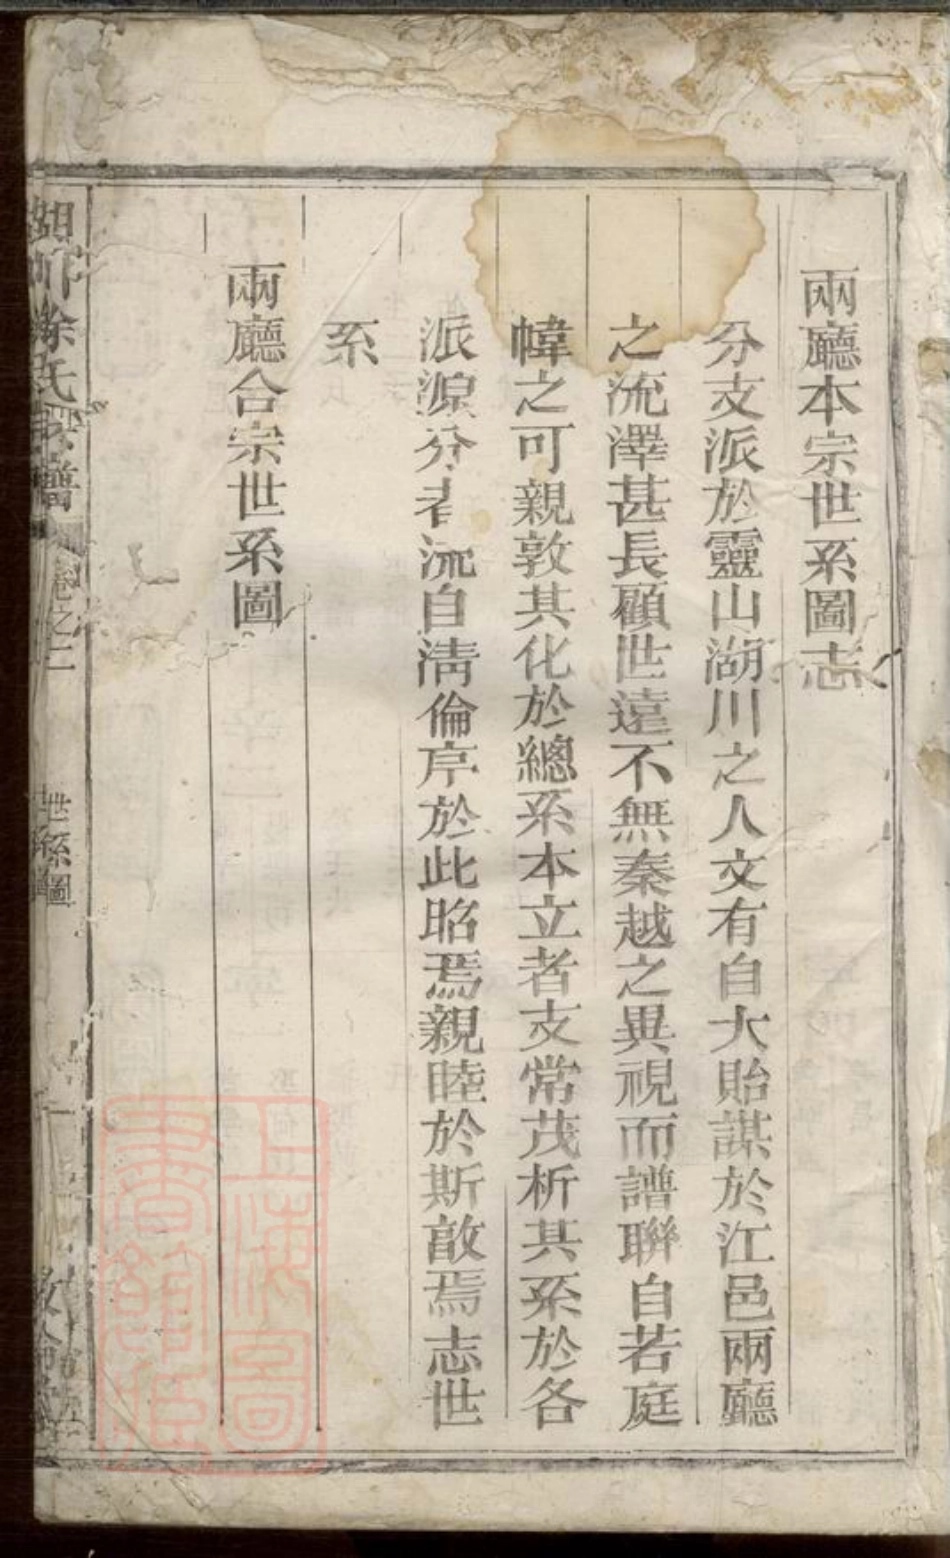 兩廳本宗世系圖志
分支派於靈山湖川之人文有自大貽謀於江邑兩廳
之流澤甚長顧世遠不無秦越之異視而譜聯自若庭
幃之可親敦其化於總系本立者支常茂析其系於各
派源分者流自淸倫序於此昭焉親睦於斯敵焉志世
系
兩廳合宗世系圖
湖川徐氏宗譜
卷之二
世系圖
上海圖
書館藏